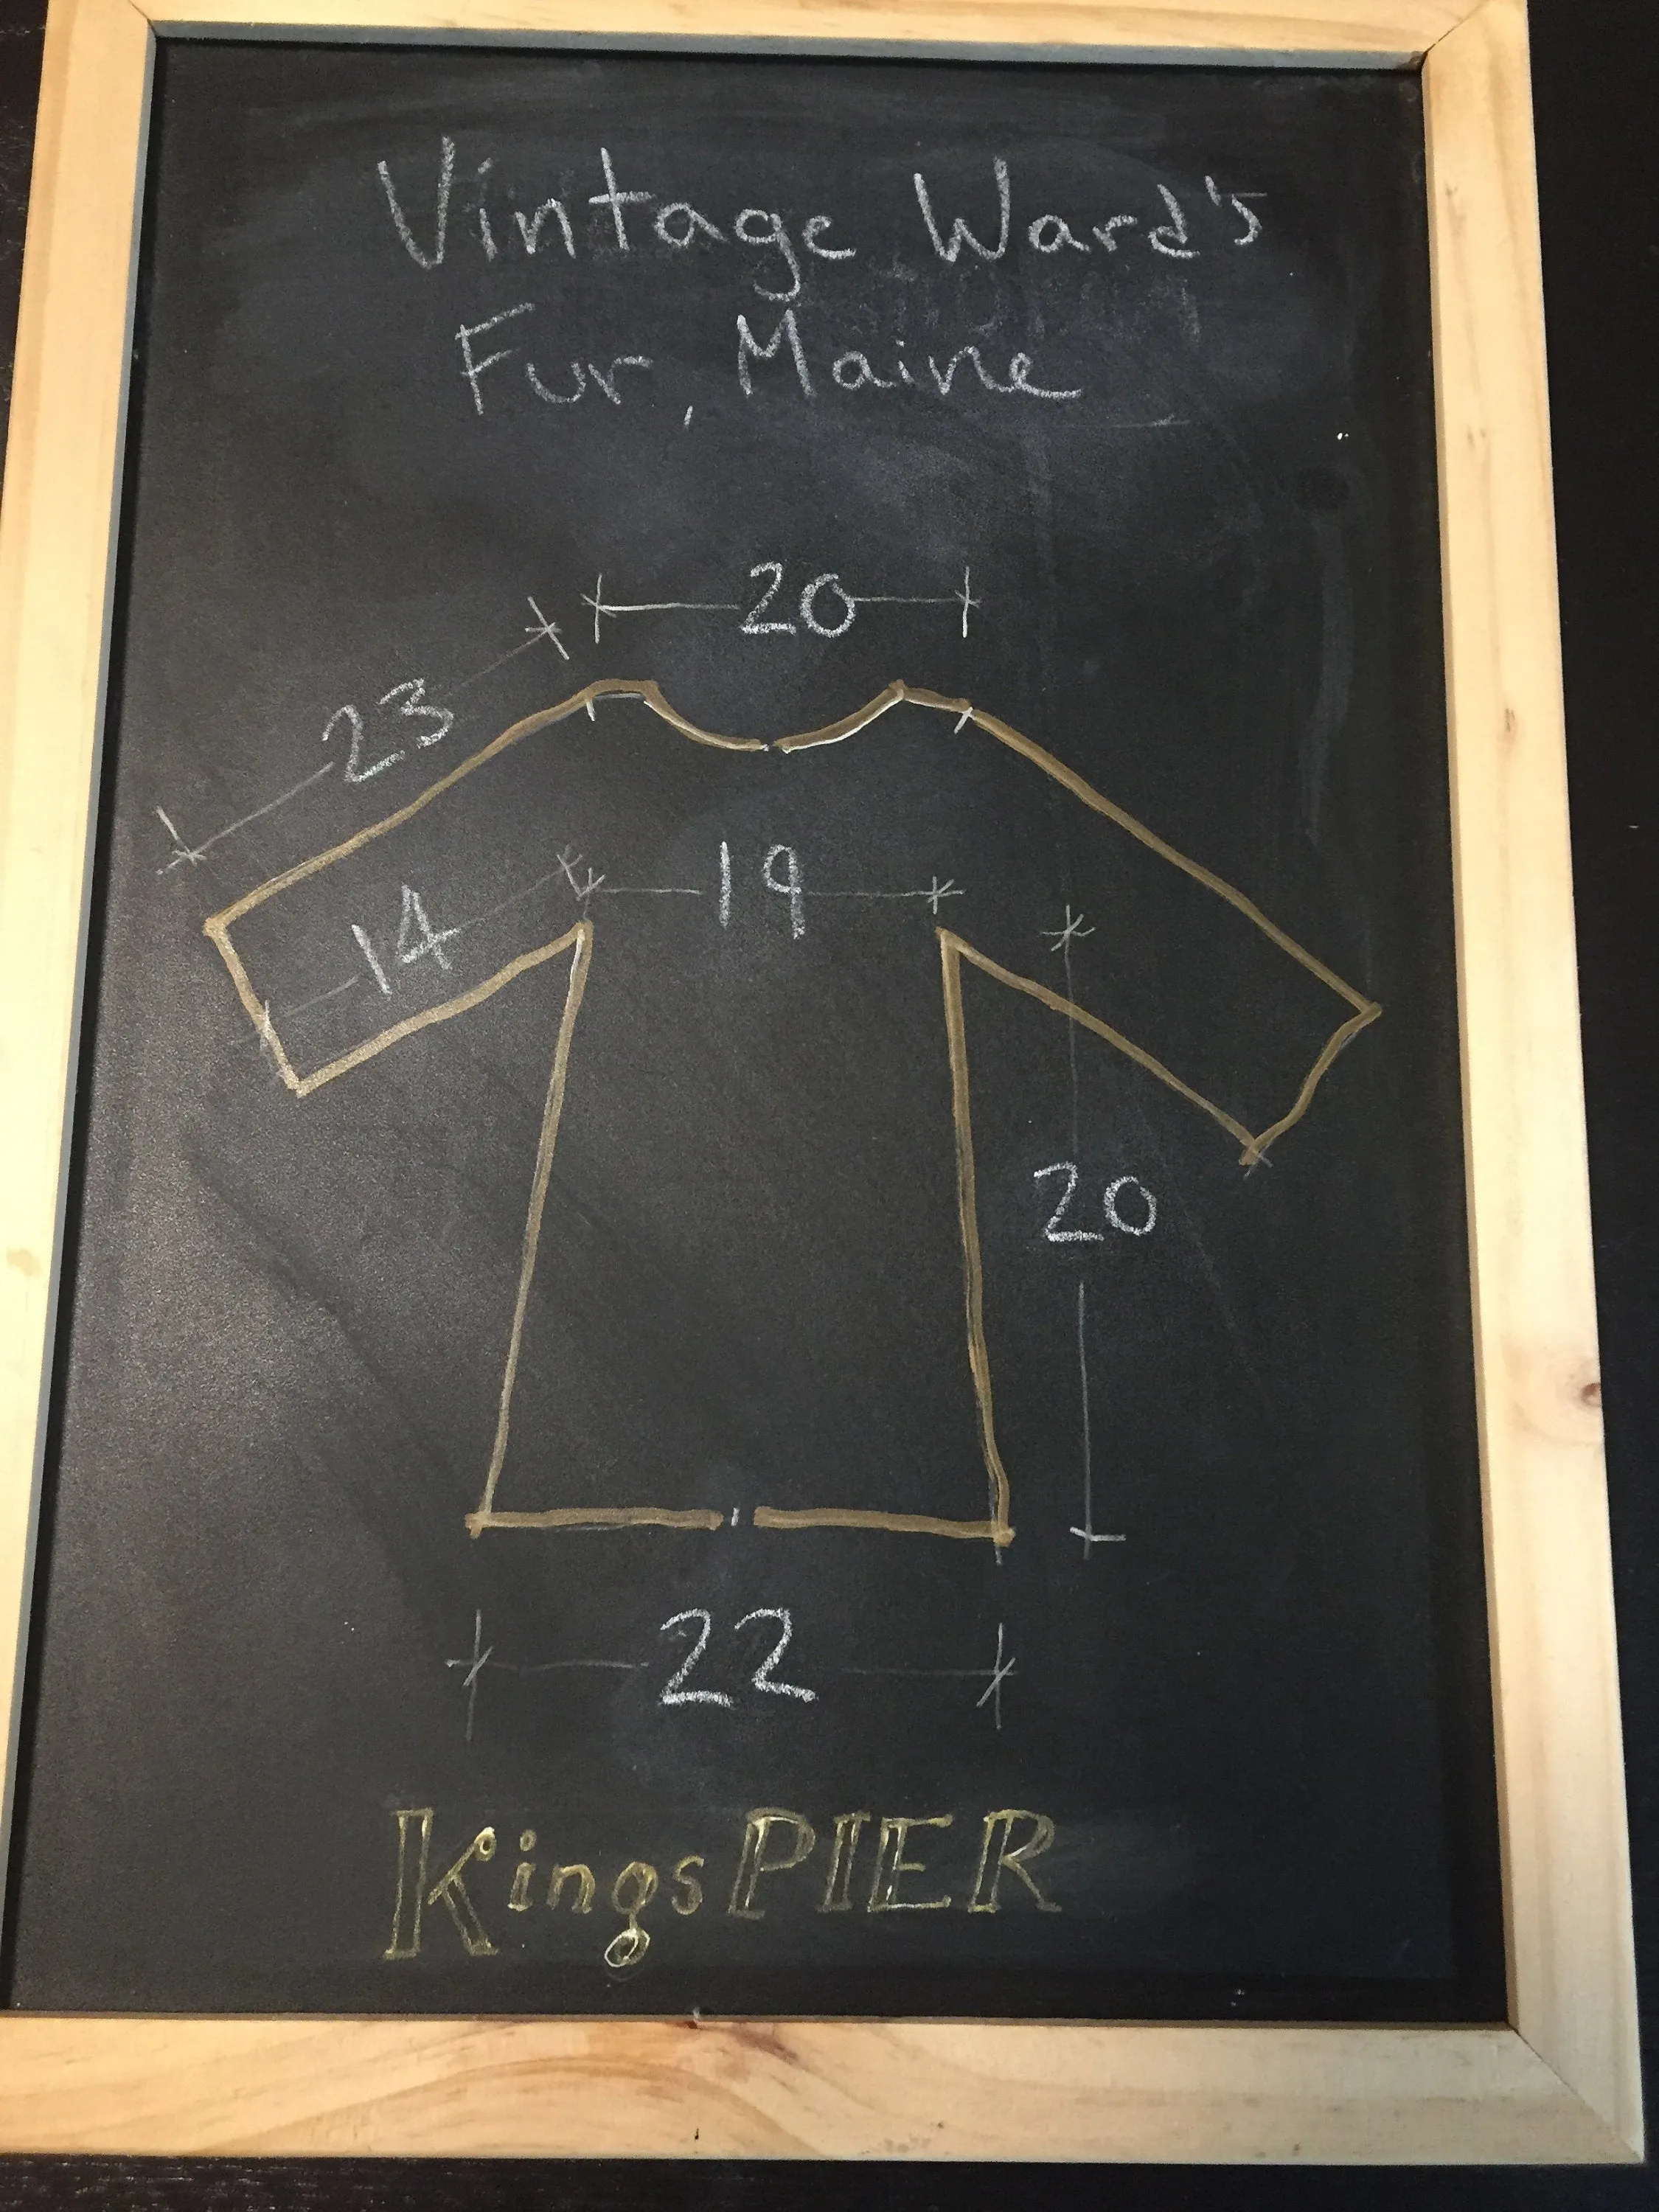 Vintage Ward's
Fur, Maine
20
23
19
14
20
22
KingsPIER